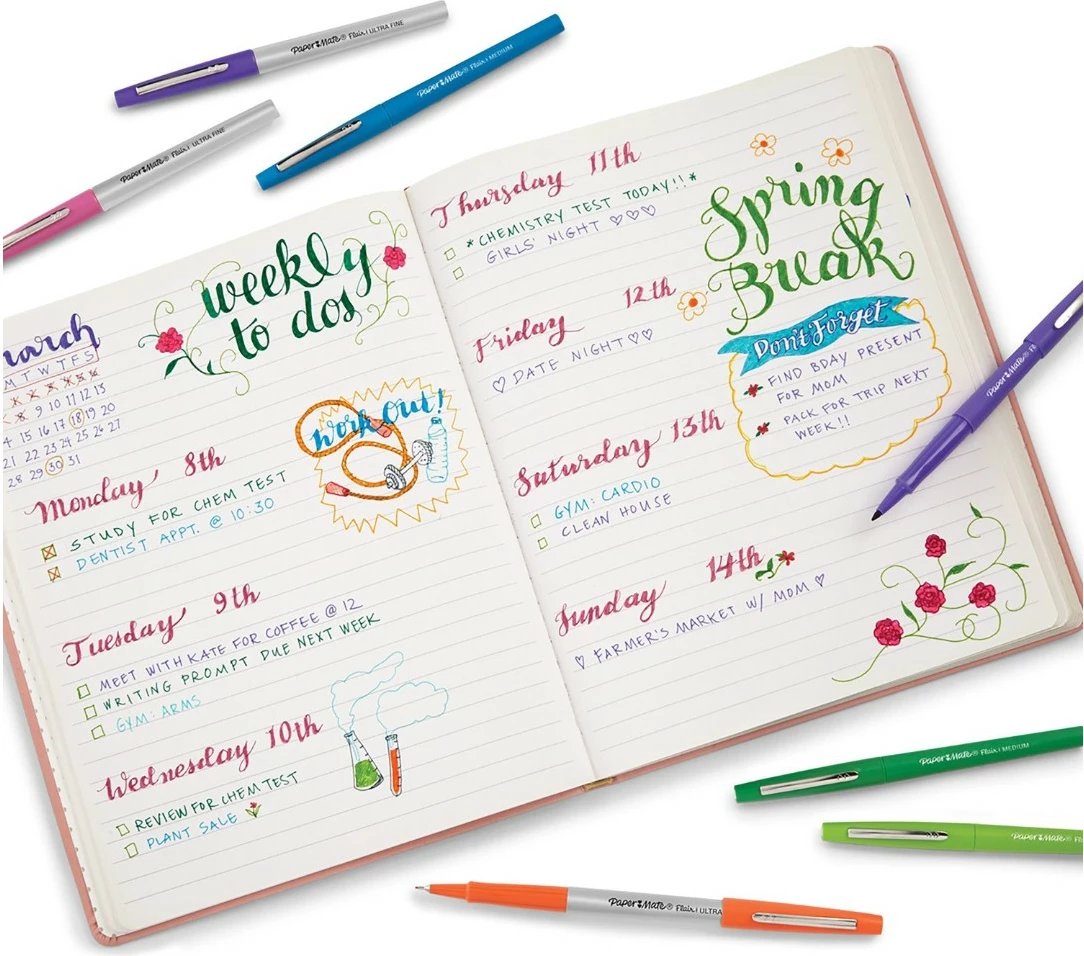 Paper Mate® Flair | ULTRA FINE
Paper Mate® Flair | MEDIUM
Paper Mate® Flair | ULTRA FINE
weekly
to dos
arch
M T W T F S
8 9 10 11 12 13
15 16 17 18 19 20
21 22 23 24 25 26 27
28 29 30 31
Work Out!
Monday 8th
STUDY FOR CHEM TEST
DENTIST APPT. @ 10:30
Tuesday 9th
MEET WITH KATE FOR COFFEE @ 12
WRITING PROMPT DUE NEXT WEEK
GYM: ARMS
Wednesday 10th
REVIEW FOR CHEM TEST
PLANT SALE
Thursday 11th
*CHEMISTRY TEST TODAY!!*
GIRLS' NIGHT ♡♡♡
Friday 12th
♡ DATE NIGHT ♡♡
Saturday 13th
GYM: CARDIO
CLEAN HOUSE
Sunday 14th
♡ FARMER'S MARKET W/ MOM ♡
Spring
Break
Don't Forget
FIND BDAY PRESENT
FOR MOM
PACK FOR TRIP NEXT
WEEK!!
Paper Mate® Flair
Paper Mate® Flair | MEDIUM
Paper Mate®
Paper Mate® Flair | ULTRA